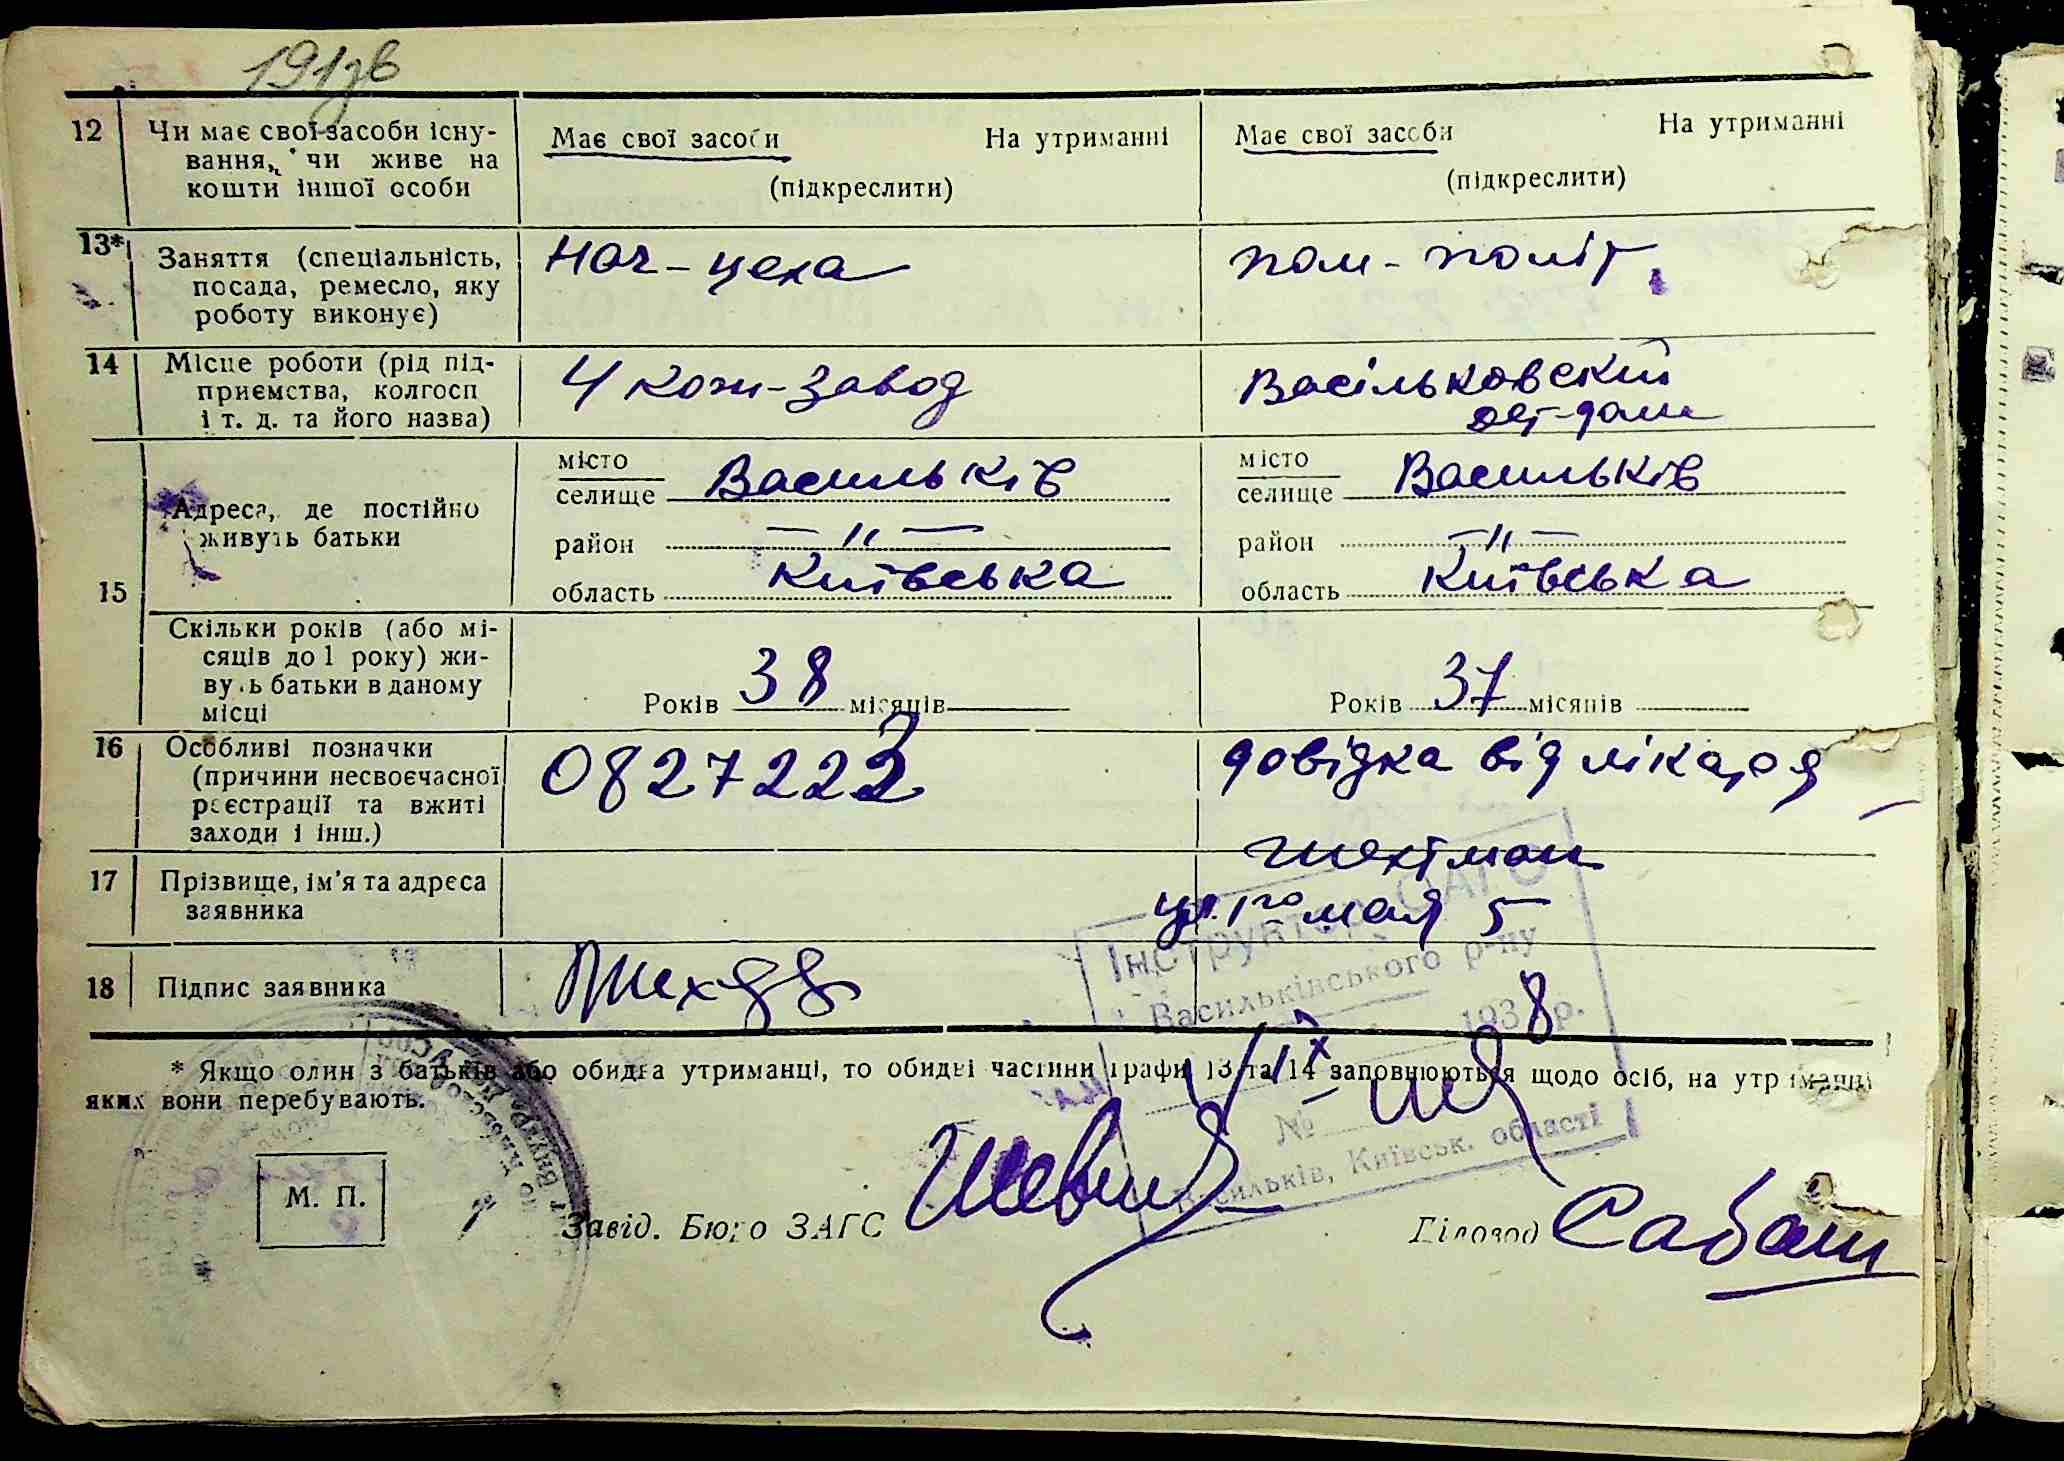 191зв
12 Чи має свої засоби існу-
вання, чи живе на
кошти іншої особи
Має свої засоби На утриманні
(підкреслити)
Має свої засоби На утриманні
(підкреслити)
13* Заняття (спеціальність,
посада, ремесло, яку
роботу виконує)
Нач-цеха
пом-політ
14 Місце роботи (рід під-
приємства, колгосп
і т. д. та його назва)
4 кож-завод
Васільковский
дет-дом
15 Адреса, де постійно
живуть батьки
місто
селище Васильків
район —"—
область Київська
місто
селище Васильків
район —"—
область Київська
Скільки років (або мі-
сяців до 1 року) жи-
вуть батьки в даному
місці
Років 38 місяців
Років 37 місяців
16 Особливі позначки
(причини несвоєчасної
реєстрації та вжиті
заходи і інш.)
0827222
довідка від лікаря
17 Прізвище, ім'я та адреса
заявника
Шехтман
ул. 1го мая 5
18 Підпис заявника
Інструктор ЗАГС
Васильківського р-ну
1938 р.
№
Васильків, Київськ. області
* Якщо один з батьків або обидва утриманці, то обидві частини графи 13 та 14 заповнюються щодо осіб, на утриманні
яких вони перебувають.
М. П.
Завід. Бюро ЗАГС
Діловод